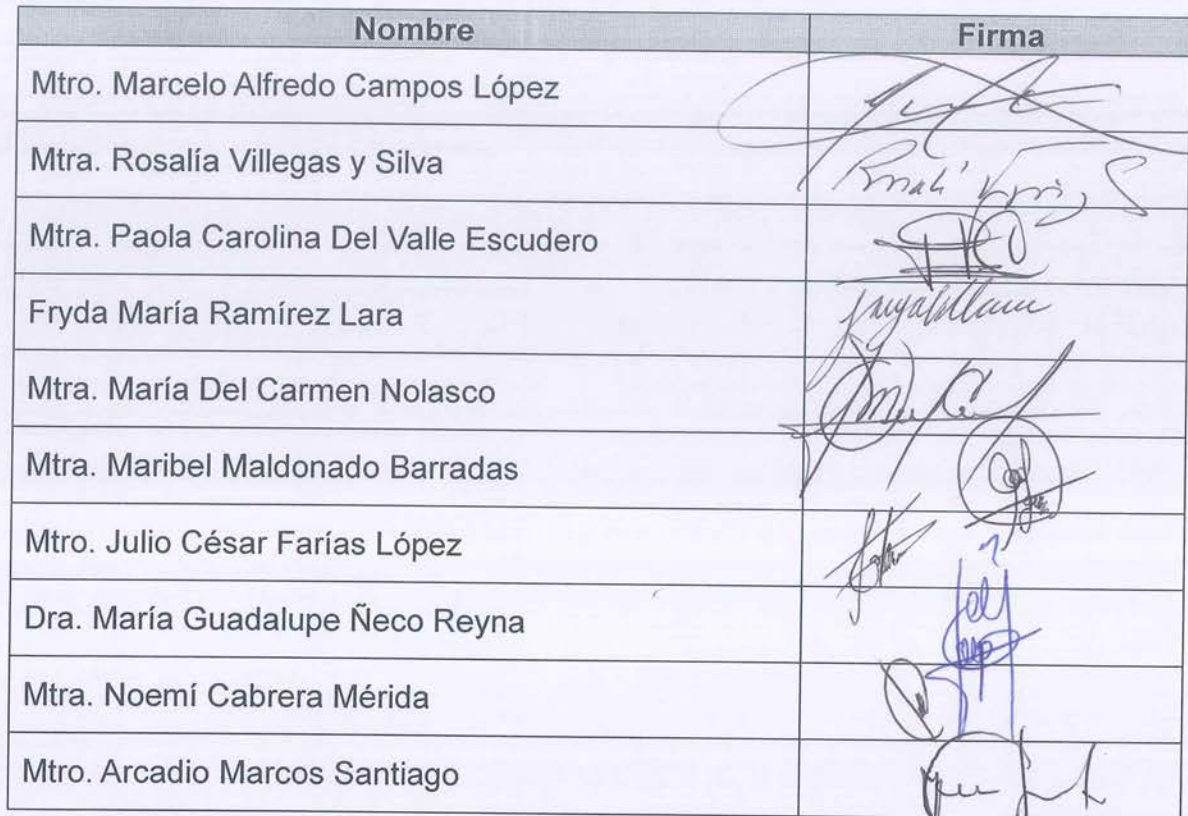 Nombre Firma
Mtro. Marcelo Alfredo Campos López
Mtra. Rosalía Villegas y Silva
Mtra. Paola Carolina Del Valle Escudero
Fryda María Ramírez Lara
Mtra. María Del Carmen Nolasco
Mtra. Maribel Maldonado Barradas
Mtro. Julio César Farías López
Dra. María Guadalupe Ñeco Reyna
Mtra. Noemí Cabrera Mérida
Mtro. Arcadio Marcos Santiago